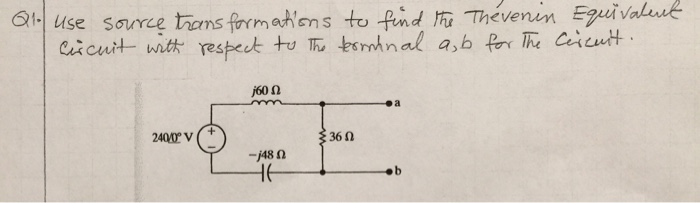 Q1. Use source transformations to find the Thévenin Equivalent
Circuit with respect to the terminal a,b for the Circuit.
j60 Ω
a
240/0° V
+
−
36 Ω
−j48 Ω
b